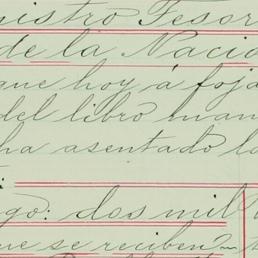 nistro Tesor
de la Nació
que hoy á foja
del libro man
ha asentado la
go: dos mil
ue se reciben